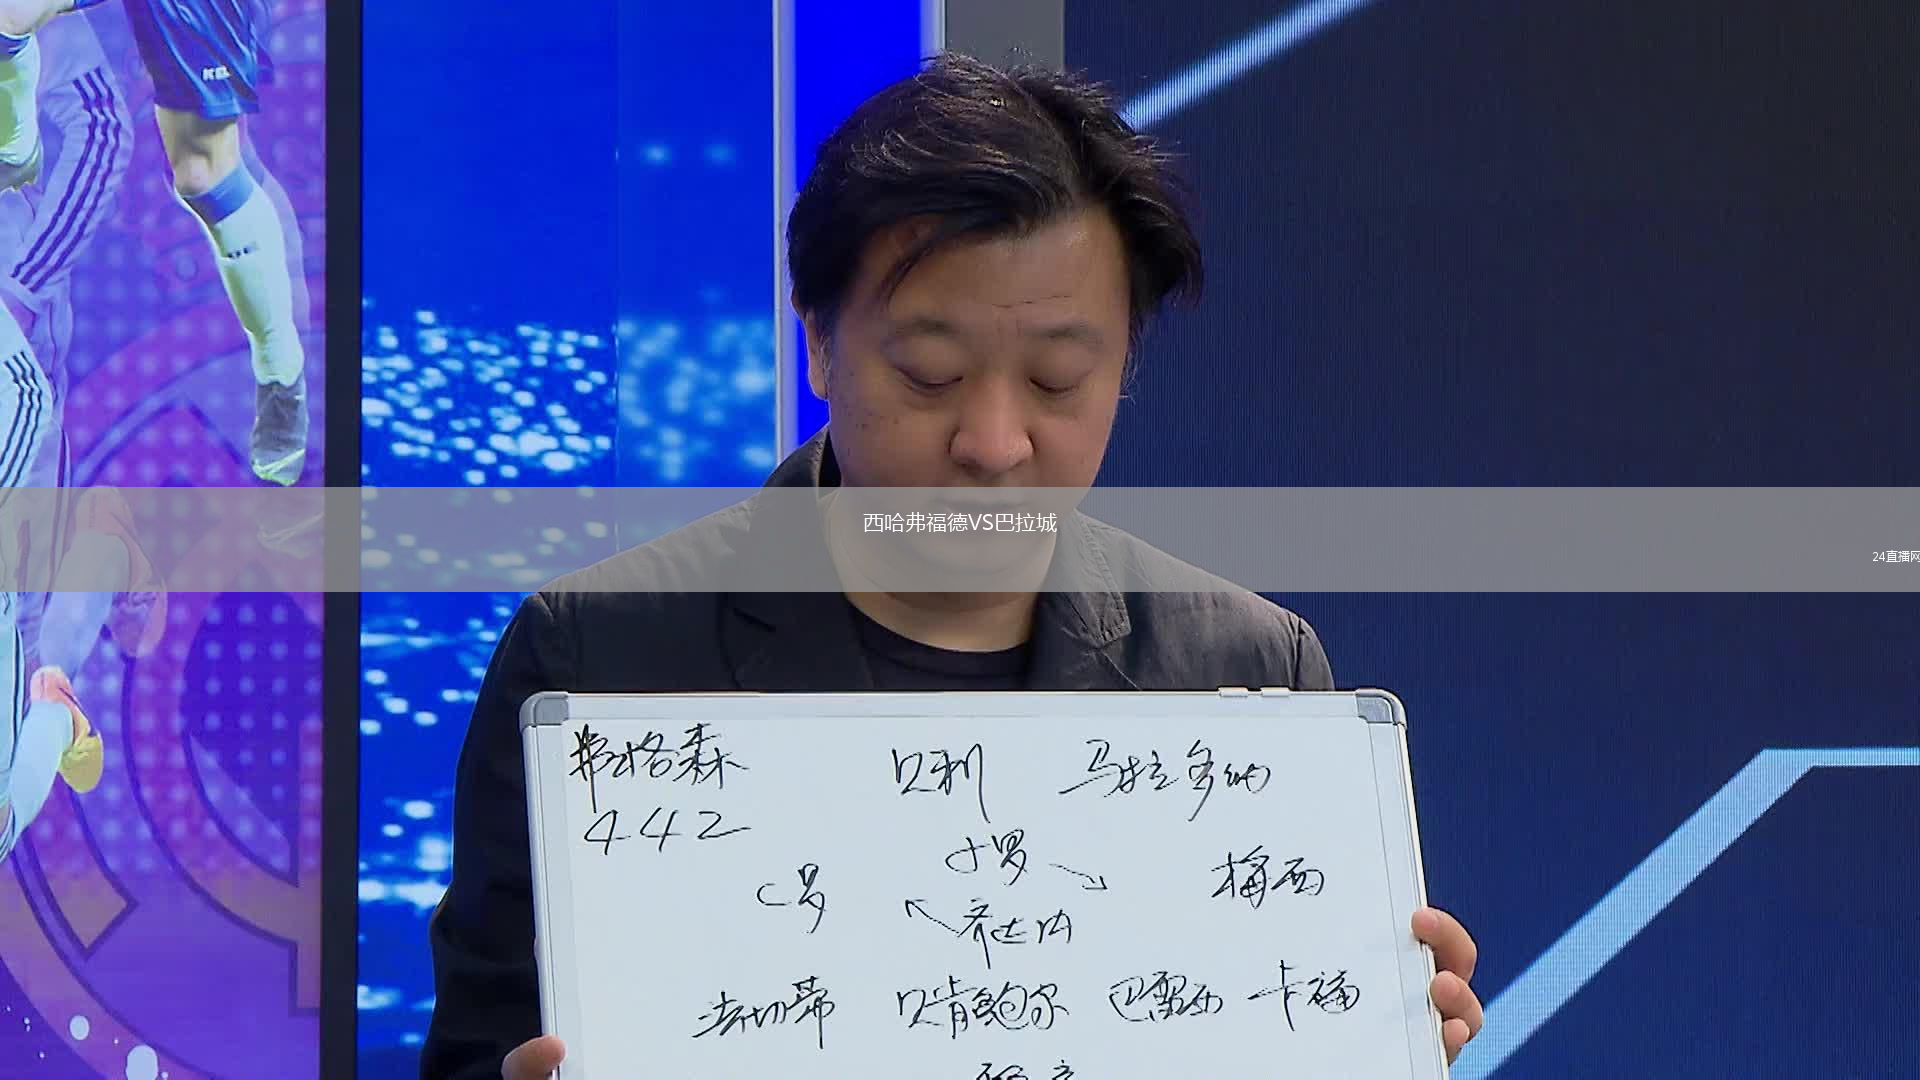 西哈弗福德VS巴拉城
24直播网
弗格森 贝利 马拉多纳
442
小罗
C罗 梅西
齐达内
法切蒂 贝肯鲍尔 巴雷西 卡福